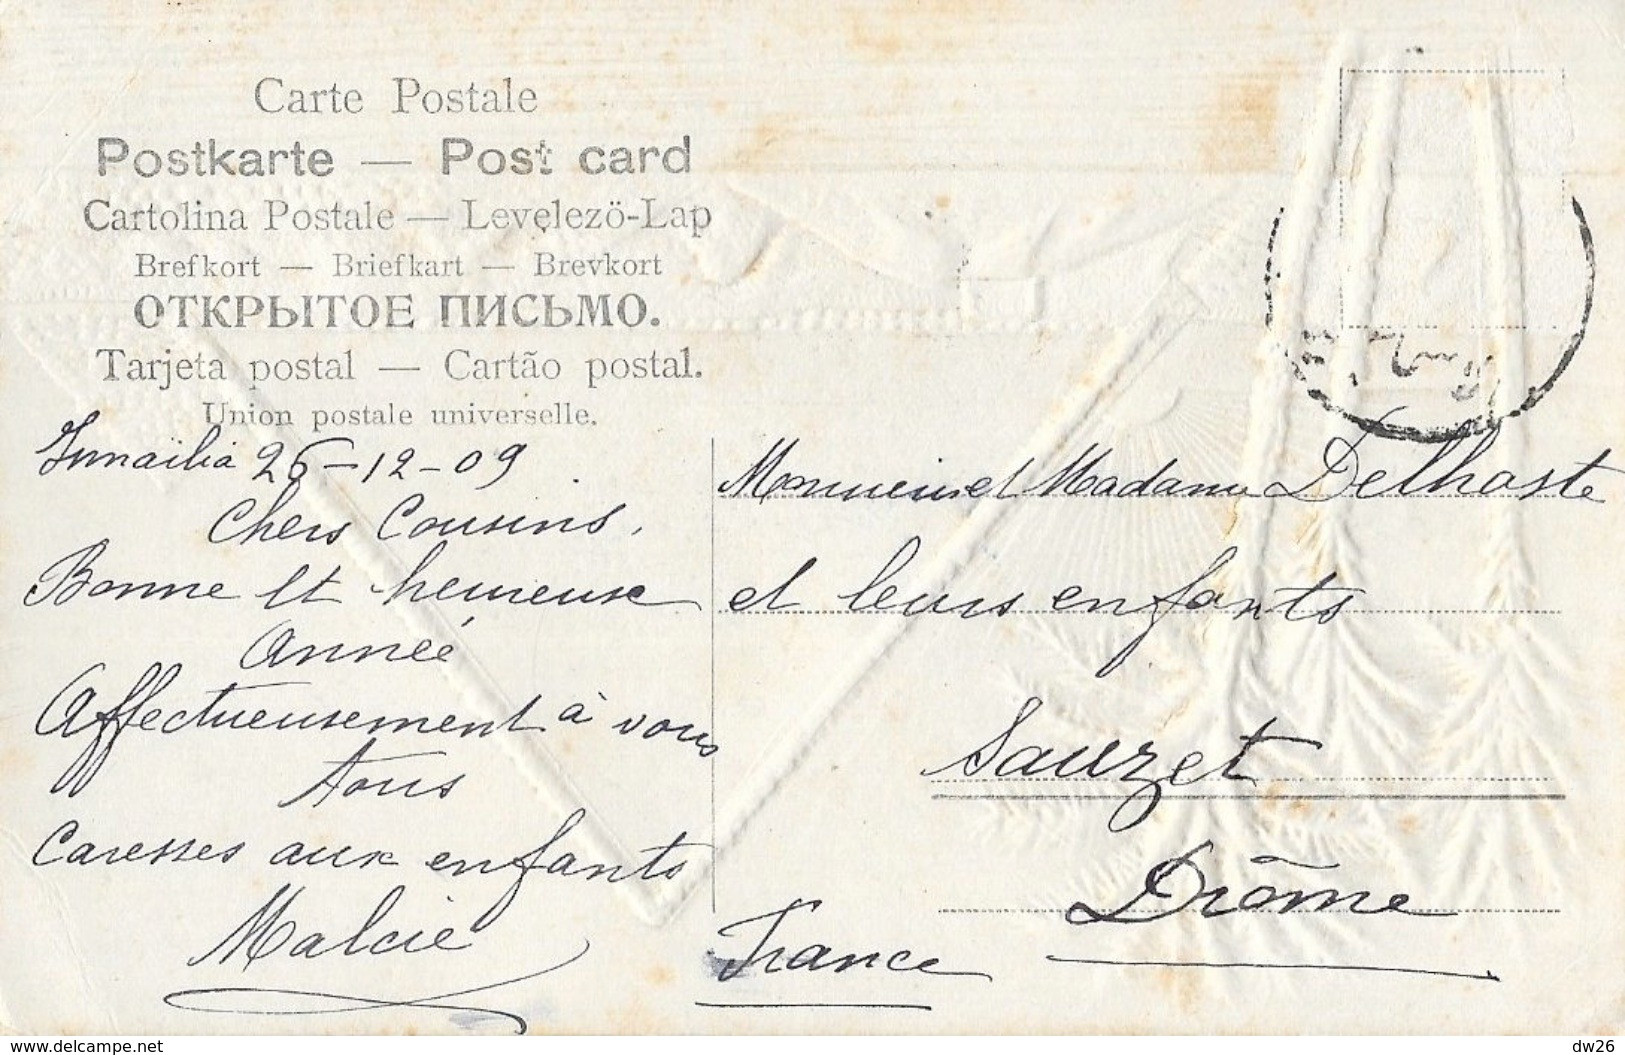 Carte Postale
Postkarte — Post card
Cartolina Postale — Levelezö-Lap
Brefkort — Briefkart — Brevkort
ОТКРЫТОЕ ПИСЬМО.
Tarjeta postal — Cartão postal.
Union postale universelle.
Ismaïlia 26-12-09
Chers Cousins,
Bonne et heureuse
Année
Affectueusement à vous
tous
Caresses aux enfants
Malcie
Monsieur et Madame Delhoste
et leurs enfants
Sauzet
Drôme
France
www.delcampe.net
dw26